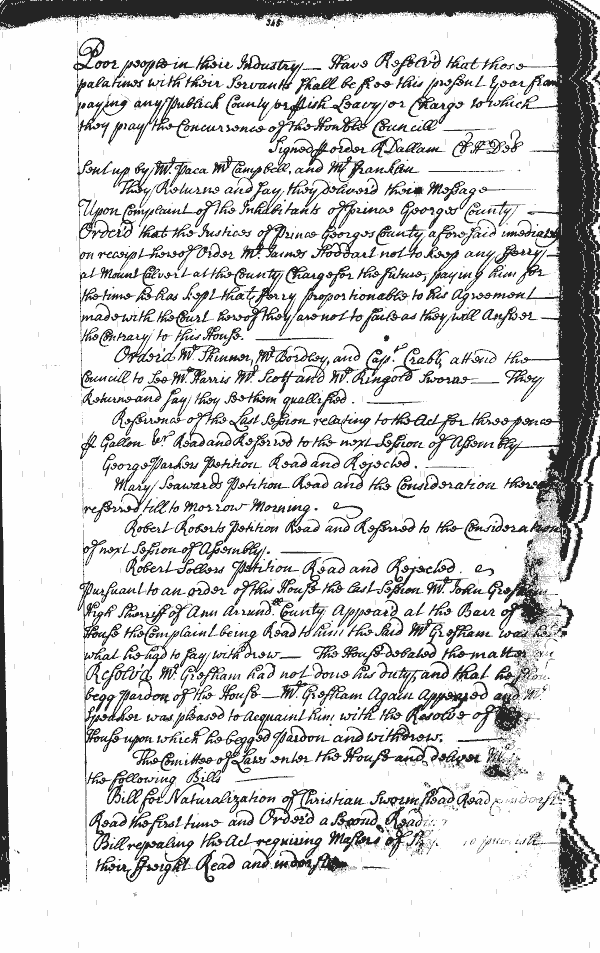 365
Poor people in their Industry — Have Resolvd that those
palatines with their Servants Shall be free this present Year from
paying any Publick County or Pish Leavy or Charge to which
they pray the Concurrence of the Honble Councill
Signed p order R Dallam Cl H Del
Sent up by Mr. Paca Mr. Campbell, and Mr. Franklin
They Returne and say, they deliverd their Message
Upon Complaint of the Inhabitants of prince Georges County
Orderd that the Justices of Prince Georges County aforesaid imediately
on receipt hereof Order Mr. James Stoddart not to keep any ferry
at Mount Calvert at the County Charge for the future, paying him for
the time he has kept that ferry proportionable to his Agreement
made with the Court hereof they are not to faile as they will Answer
the Contrary to this House.
Orderd Mr. Skinner, Mr. Bordley, and Capt. Crabb, attend the
Councill to See Mr. Harris Mr. Scott and Mr. Ringold Sworne — They
Returne and say they see them quallified.
Referrence of the Last Session relating to the Act for three pence
p Gallon &c. Read and Referred to the next Session of Assembly
George Parkers Petition Read and Rejected.
Mary Seawards Petition Read and the Consideration thereof
referred till to Morrow Morning.
Robert Roberts Petition Read and Referred to the Consideration
of next Session of Assembly.
Robert Sollers Petition Read and Rejected.
Pursuant to an order of this House the last Session Mr. John Gresham
High Sherriff of Ann Arrund.ll County Appeard at the Barr of
House the Complaint being Read to him the said Mr. Gresham was
what he had to say withdrew — The House debated the matter and
Resolv'd Mr. Gresham had not done his duty, and that he
begg pardon of the House — Mr. Gresham Again Appeared and Mr.
Speaker was pleased to Acquaint him with the Resolve of
House upon which he begged Pardon and withdrew.
The Comittee of Laws enter the House and deliver
the following Bills
Bill for Naturalization of Christian Swormstead Read
Read the first time and Orderd a Second Reading
Bill repealing the Act requiring Masters of
their ffreight Read and indorst